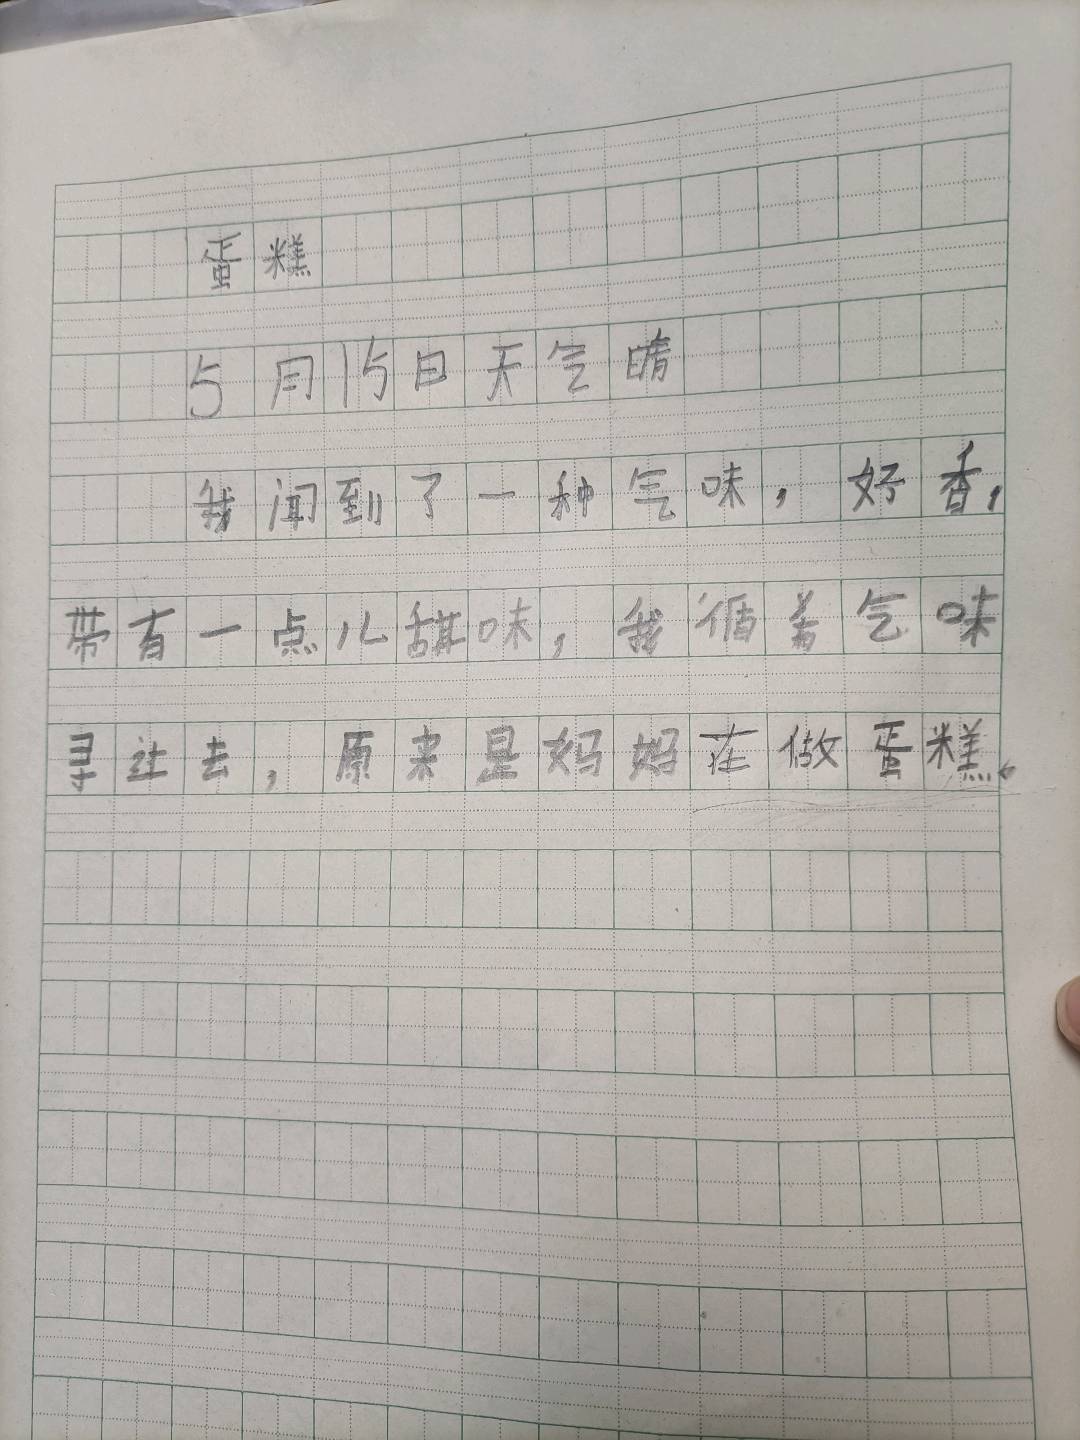 蛋糕
5月15日天气晴
我闻到了一种气味，好香，
带有一点儿甜味，我循着气味
寻过去，原来是妈妈在做蛋糕。